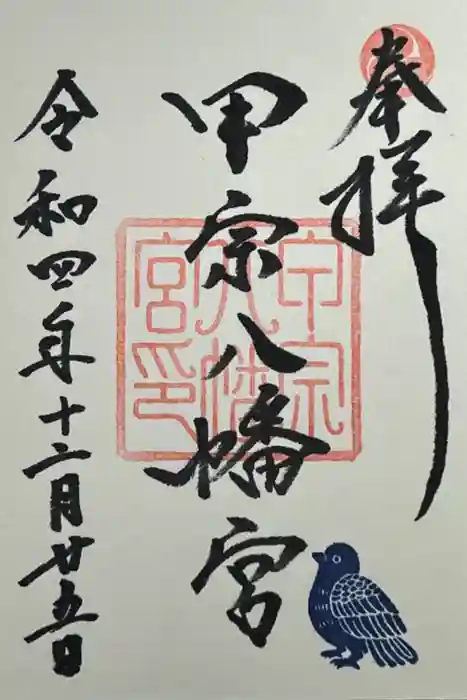 奉拝
甲宗八幡宮
令和四年十二月廿五日
甲宗
八幡
宮印